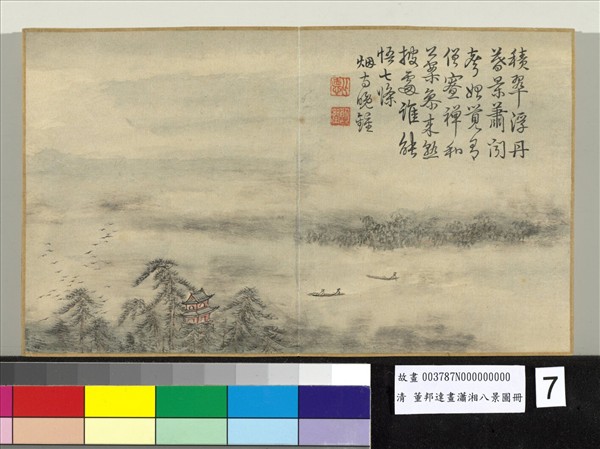 積翠浮丹
暮景蕭聞
聲始覺有
僧寮禪和
公案參來
披處誰能
悟七條
烟寺晚鐘
故畫 003787N000000000
清 董邦達畫瀟湘八景圖冊
7